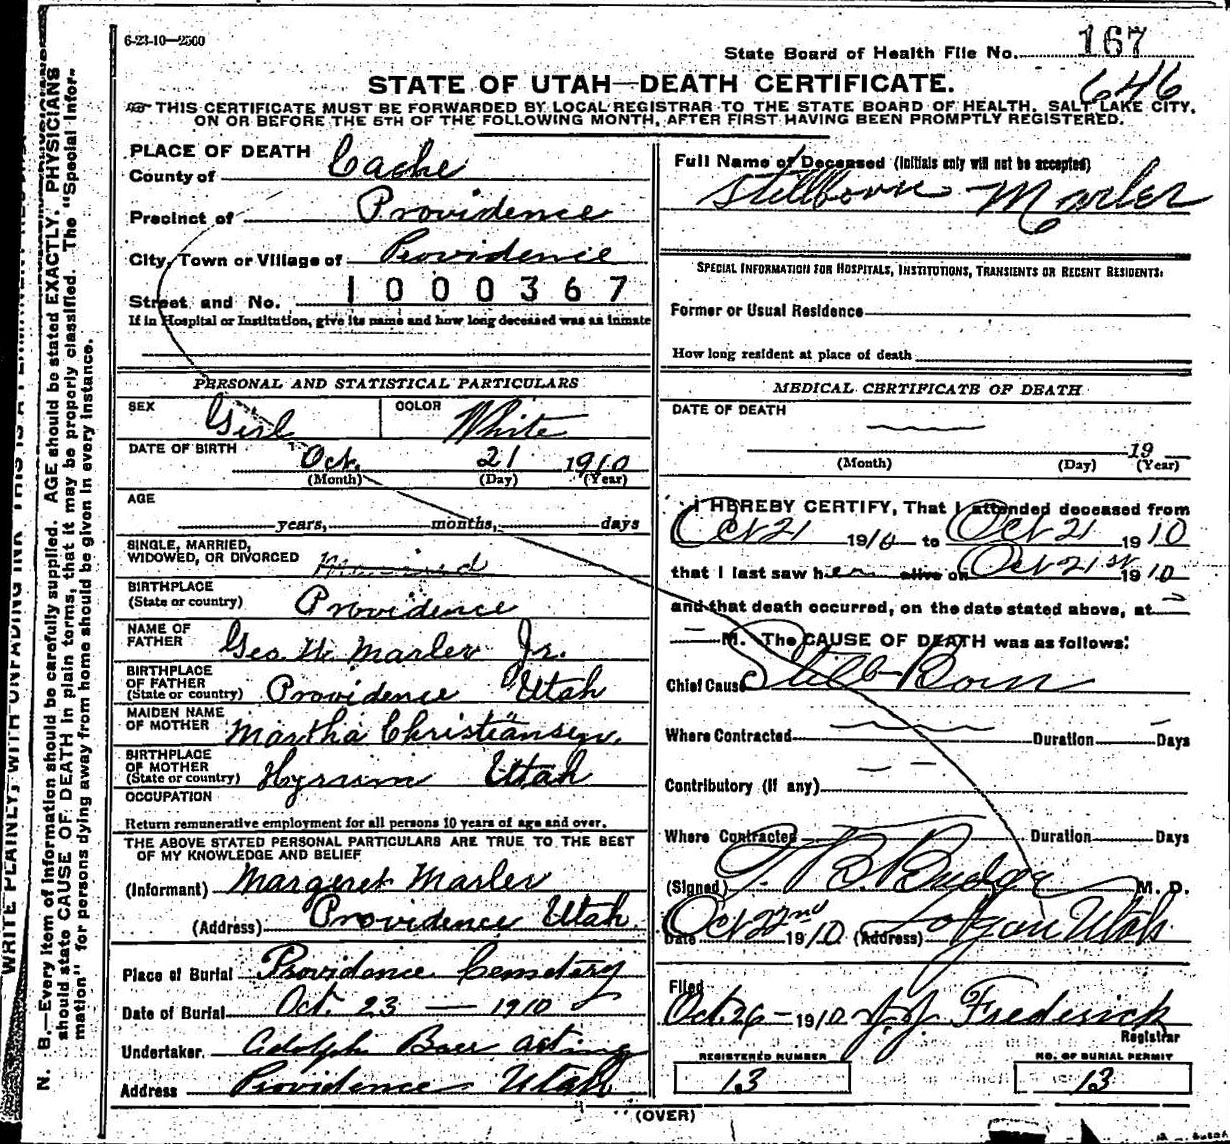 6-23-10—2500
State Board of Health File No. 167
646
STATE OF UTAH—DEATH CERTIFICATE.
THIS CERTIFICATE MUST BE FORWARDED BY LOCAL REGISTRAR TO THE STATE BOARD OF HEALTH, SALT LAKE CITY,
ON OR BEFORE THE 5TH OF THE FOLLOWING MONTH, AFTER FIRST HAVING BEEN PROMPTLY REGISTERED.
PLACE OF DEATH
County of Cache
Precinct of Providence
City, Town or Village of Providence
Street and No. 1000367
If in Hospital or Institution, give its name and how long deceased was an inmate
PERSONAL AND STATISTICAL PARTICULARS
SEX Girl COLOR White
DATE OF BIRTH
Oct. 21 1910
(Month) (Day) (Year)
AGE
years, months, days
SINGLE, MARRIED,
WIDOWED, OR DIVORCED
BIRTHPLACE
(State or country) Providence
NAME OF
FATHER Geo. W. Marler Jr.
BIRTHPLACE
OF FATHER
(State or country) Providence Utah
MAIDEN NAME
OF MOTHER Martha Christiansen.
BIRTHPLACE
OF MOTHER
(State or country) Hyrum Utah
OCCUPATION
Return remunerative employment for all persons 10 years of age and over.
THE ABOVE STATED PERSONAL PARTICULARS ARE TRUE TO THE BEST
OF MY KNOWLEDGE AND BELIEF
(Informant) Margaret Marler
(Address) Providence Utah
Place of Burial Providence Cemetery
Date of Burial Oct. 23 — 1910
Undertaker. Adolph Baer acting
Address Providence Utah
Full Name of Deceased (Initials only will not be accepted)
Stillborn Marler
SPECIAL INFORMATION FOR HOSPITALS, INSTITUTIONS, TRANSIENTS OR RECENT RESIDENTS:
Former or Usual Residence
How long resident at place of death
MEDICAL CERTIFICATE OF DEATH
DATE OF DEATH
19
(Month) (Day) (Year)
I HEREBY CERTIFY, That I attended deceased from
Oct 21 1910 to Oct 21 1910
that I last saw her alive on Oct 21st 1910
and that death occurred, on the date stated above, at
M. The CAUSE OF DEATH was as follows:
Chief Cause Still-Born
Where Contracted Duration Days
Contributory (if any)
Where Contracted Duration Days
(Signed) Budge M. D.
Date Oct 22nd 1910 (Address) Logan Utah
Filed
Oct. 26 - 1910 J.J. Frederick
Registrar
REGISTERED NUMBER
13
NO. OF BURIAL PERMIT
13
(OVER)
WRITE PLAINLY, WITH UNFADING INK
N. B.—Every item of information should be carefully supplied. AGE should be stated EXACTLY. PHYSICIANS
should state CAUSE OF DEATH in plain terms, that it may be properly classified. The "Special Infor-
mation" for persons dying away from home should be given in every instance.